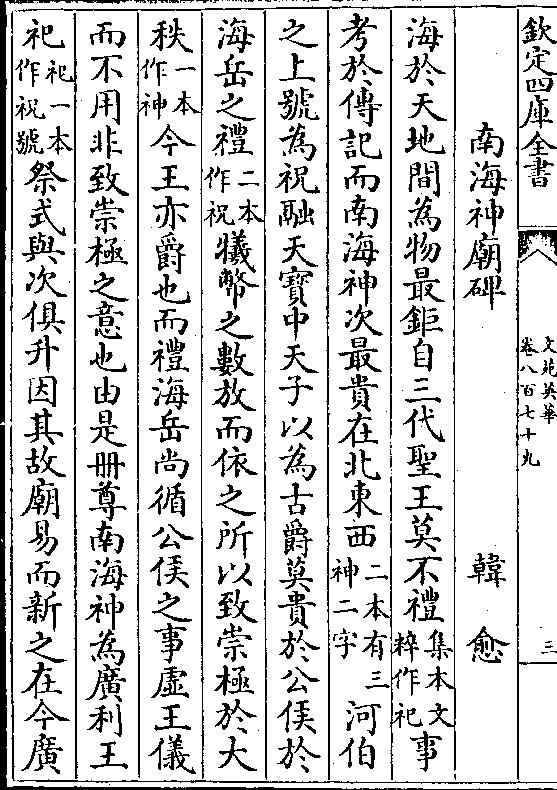 欽定四庫全書
文苑英華
卷八百七十九
三
南海神廟碑
韓愈
海於天地間為物最鉅自三代聖王莫不禮集本文粹作祀事
考於傳記而南海神次最貴在北東西二本有三神二字河伯
之上號為祝融天寶中天子以為古爵莫貴於公侯於
海岳之禮二本作祝犧幣之數放而依之所以致崇極於大
秩一本作神今王亦爵也而禮海岳尚循公侯之事虛王儀
而不用非致崇極之意也由是册尊南海神為廣利王
祀祀一本作祝號祭式與次俱升因其故廟易而新之在今廣